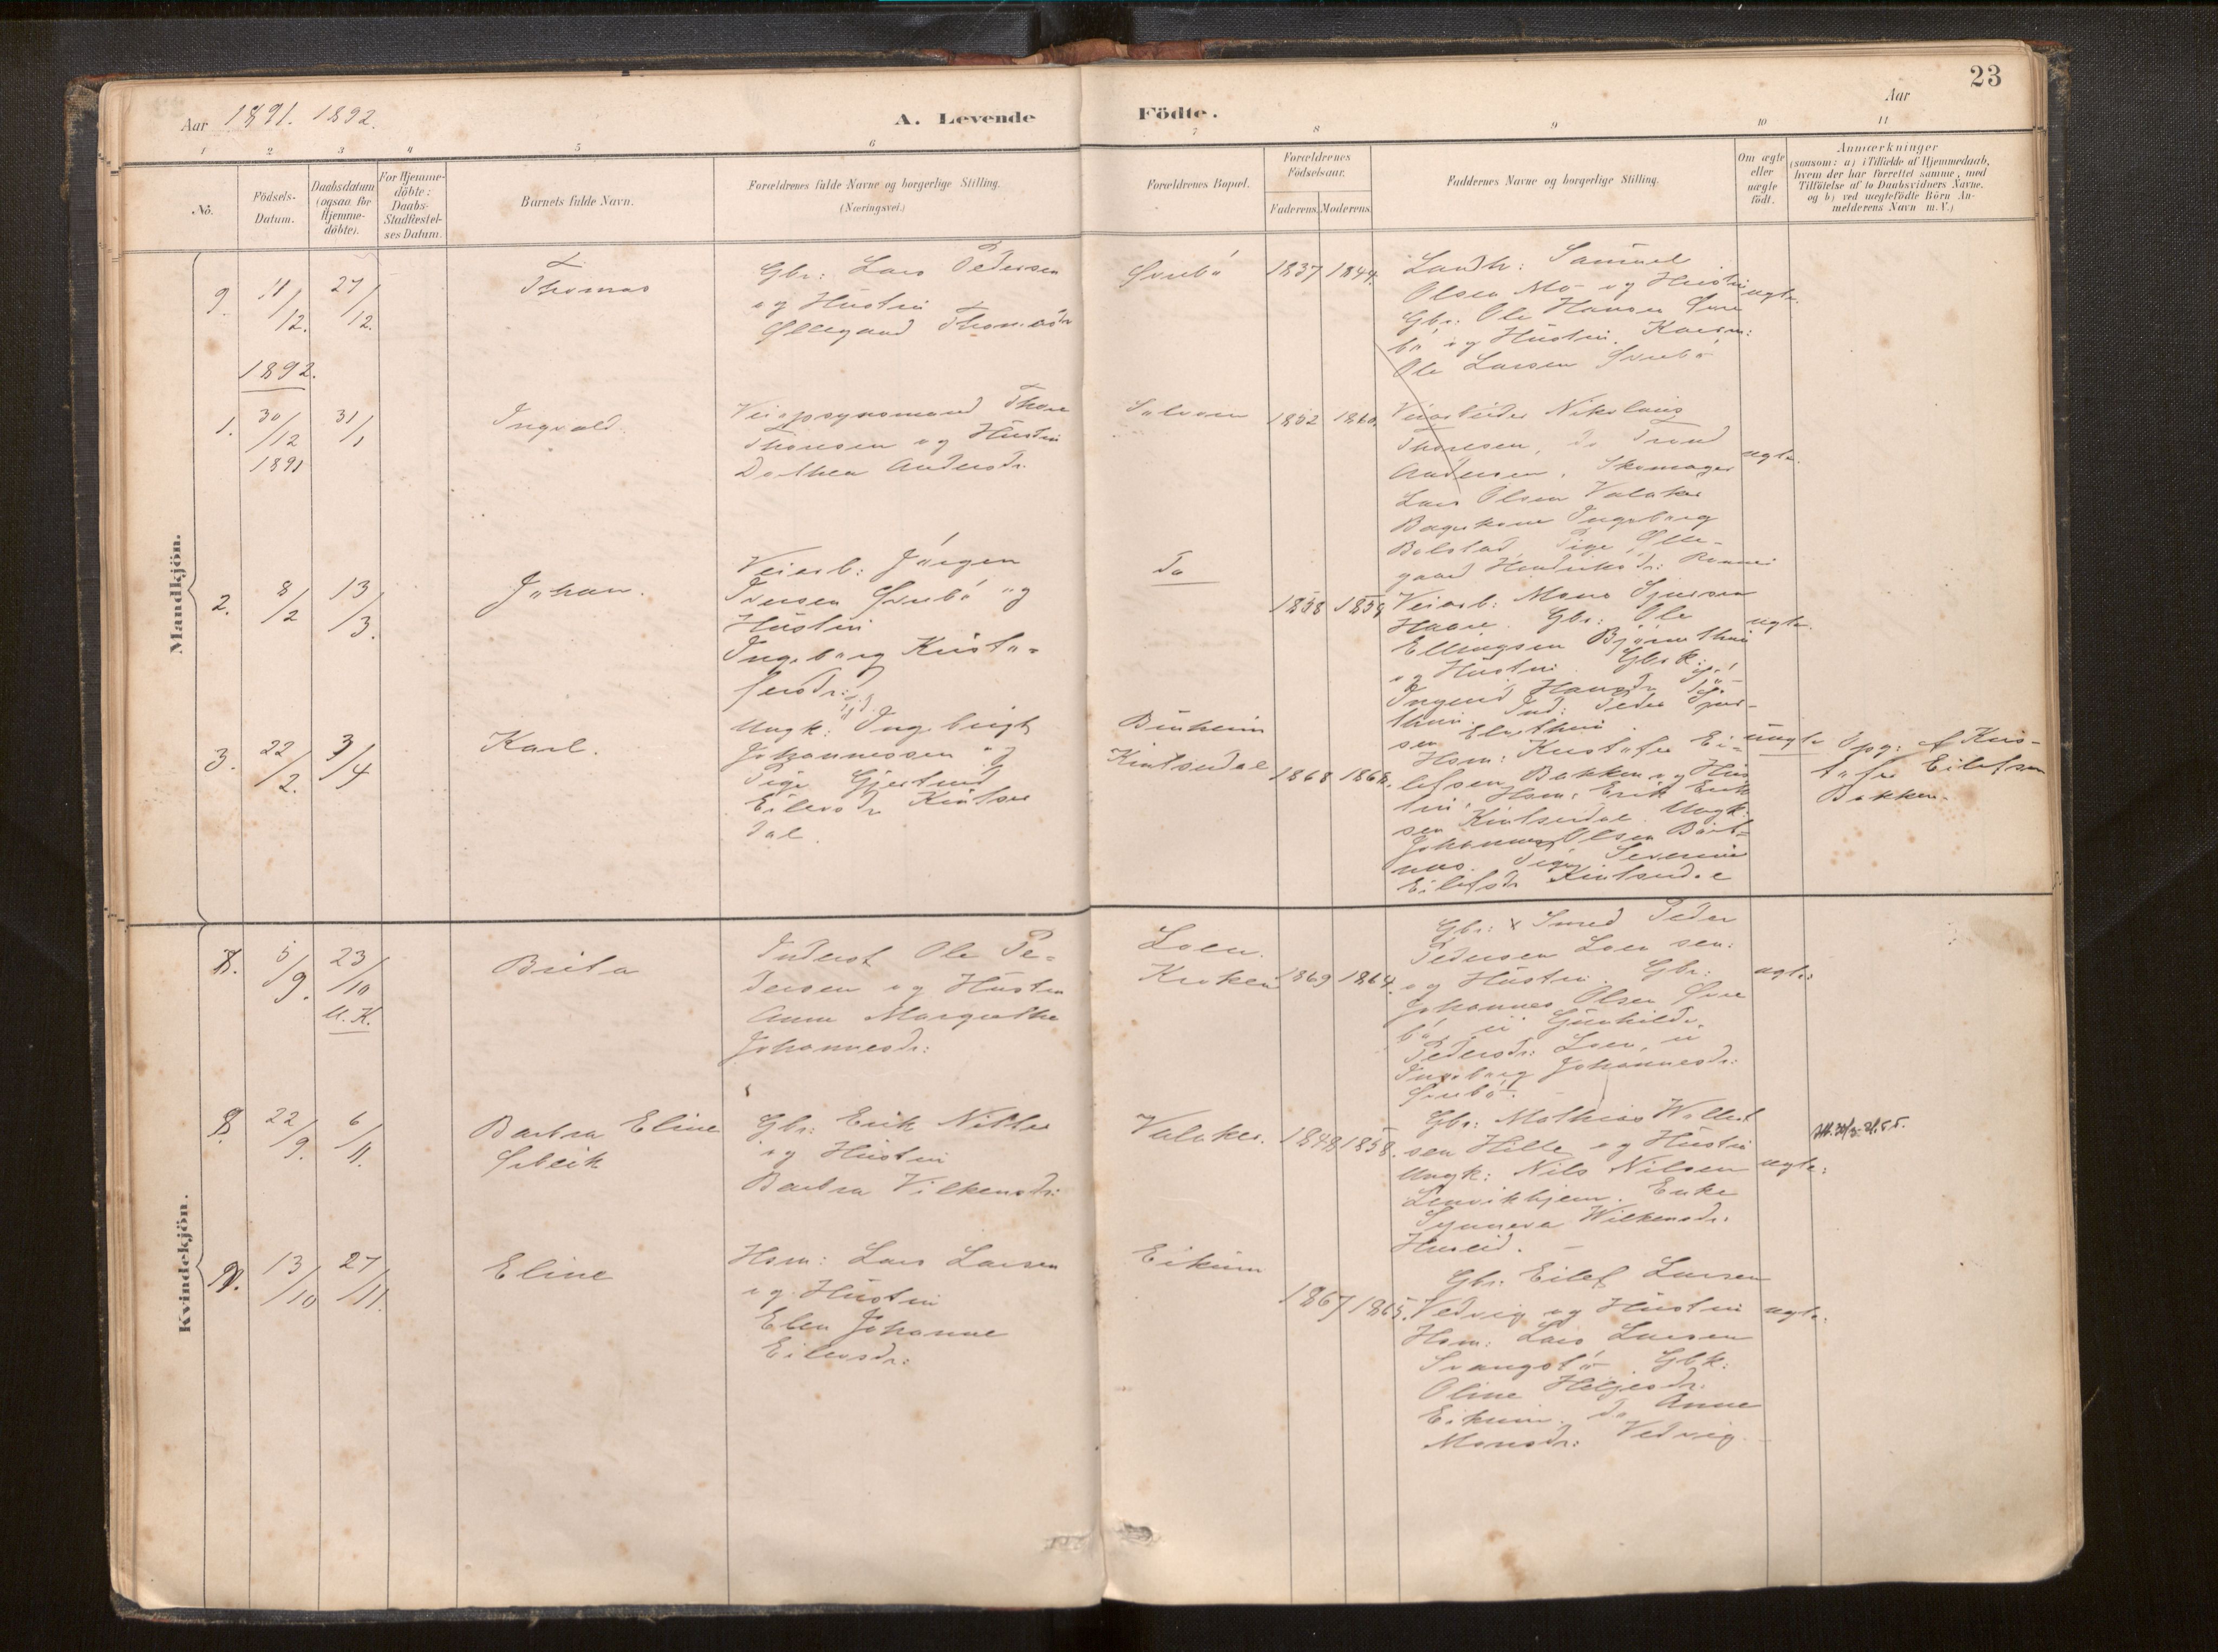 23
Aar 1891. 1892.
A. Levende Födte.
Aar
1 2 3 4 5 6 7 8 9 10 11
Nô.
Födsels-Datum.
Daabsdatum (ogsaa for Hjemme-döbte).
For Hjemme-döbte: Daabs-Stadfæstel-ses Datum.
Barnets fulde Navn.
Forældrenes fulde Navne og borgerlige Stilling. (Næringsvei.)
Forældrenes Bopæl.
Forældrenes Födselsaar.
Faderens. Moderens.
Faddernes Navne og borgerlige Stilling.
Om ægte eller uægte födt.
Anmærkninger (saasom: a) i Tilfælde af Hjemmedaab, hvem der har forrettet samme, med Tilföielse af to Daabsvidners Navne. og b) ved uægtefödte Börn An-melderens Navn m.V.)
Mandkjön.
9. 11/12. 27/12.
Thomas
Gbr: Lars Pedersen
og Hustru
Øllegaard Thomasdr
Ørebö
1837 1844.
Landh: Samuel
Olsen Mo og Hustru
Gbr: Ole Hansen Øre
bö og Hustru. Karen:
Ole Larsen Ørebö
ægte.
1892.
1. 30/12 1891 31/1
Ingvald.
Veiopsynsmand Thore
Thoresen og Hustru
Dorthea Andersdr.
Solvorn
1852 1860.
Veiarbeider Nikolaus
Thoresen, do Trond
Andersen. Skomager
Lars Olsen Valaker
Bagerkone Ingeborg
Bolstad, Pige Ølle-
gaard Hendriksdr:
ægte.
2. 8/2 13/3.
Johan.
Veiarb: Jörgen
Iversen Ørebö og
Hustru
Ingeborg Kristo-
fersdr:
Do
1858 1859
Veiarb: Mons Sjursen
Haave. Gbr: Ole
Ellingsen Björnethun
og Hustru. Gbrk:
Ingerid Hansdr
thun. Ind: Peder Sjur-
sen Elvethun
ægte.
3. 22/2. 3/4
Karl.
Ungk: Ingebrigt
Johannessen og
Pige Gjertrud
Eilevsdr Kinse
dal.
Kinsedal
1868 1868.
Hsm: Kristofer Ei-
lefsen Bakken og Hus
tru. Hsm: Erik Erik
sen Kinsedal. Ungk:
Johannes Olsen
Pige Severine
Eilefsdr Kinsedal
uægte
Opg: af Kris-
tofer Eilefsen
Bakken.
Kvindekjön.
7. 5/9. 23/10 U.K.
Brita
Inderst Ole Pe-
dersen og Hustru
Anna Margrethe
Johannesdr:
Loen.
Kroken
1869 1864.
Gbr: x Smed Peder
Pedersen Loen sen:
og Hustru. Gbr:
Johannes Olsen Øre
bö, u Gunhilde
Pedersdr: Loen, u
Ingeborg Johannesdr:
Ørebö.
ægte:
8. 22/9. 6/11.
Barbra Eline
Gbr: Erik Nilsen
og Hustru
Barbra Vilkensdr:
Valaker.
1848 1858.
Gbr: Mathias Wollert
sen Hille og Hustru
Ungk: Nils Nilsen
Enke
Synneva Wilkensdr.
ægte:
9. 13/10 27/11.
Eline
Hsm: Lars Larsen
og Hustru
Elen Johanne
Eilevsdr:
Eikum
1867 1865.
Gbr: Eilef Larsen
Vedvig og Hustru
Hsm: Lars Larsen
Gbk:
Oline Heljesdr.
Eikum. do Anne
Monsdr: Vedvig
ægte.